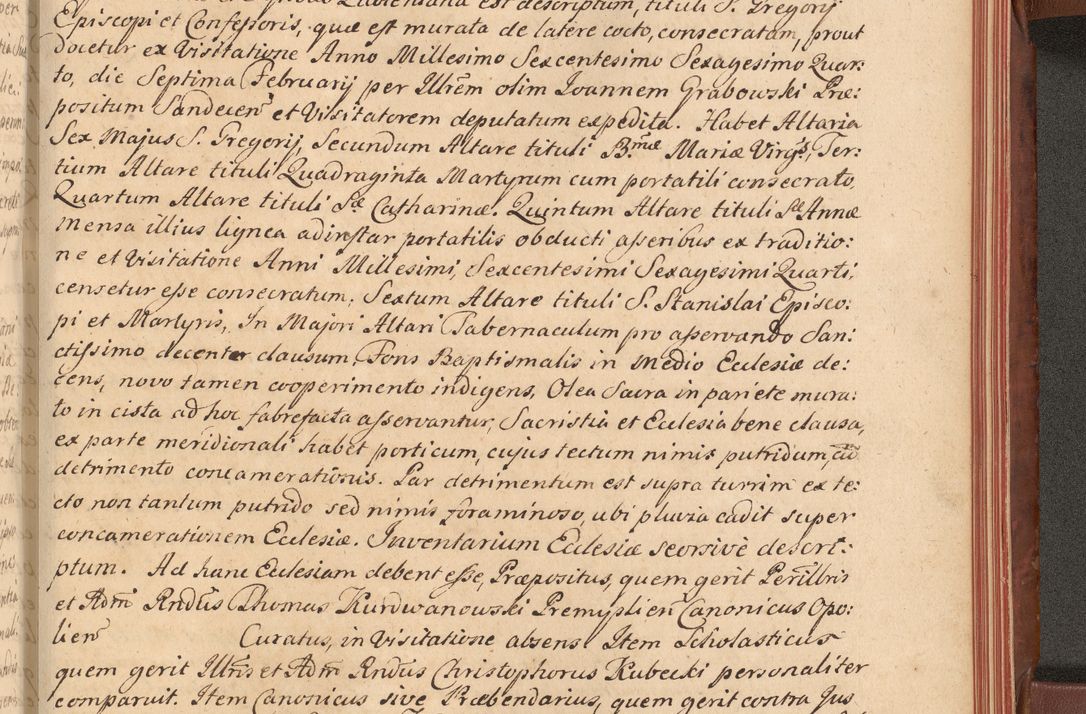 Episcopi et Confessoris, quæ est murata de latere cocto, consecratam, prout
docetur ex Visitatione Anno Millesimo Sexcentesimo Sexagesimo Quar:
to, die Septima Februarij per Illrem olim Joannem Grabowski Præ:
positum Sandecen et Visitatorem deputatum expedita. Habet Altaria
Sex Majus S. Gregorij, Secundum Altare tituli B.mæ Mariæ Virgs, Ter:
tium Altare tituli Quadraginta Martyrum cum portatili consecrato,
Quartum Altare tituli Sæ Catharinæ. Quintum Altare tituli Sæ Annæ
mensa illius lignea ad instar portatilis obducti asseribus ex traditio:
ne et Visitatione Anni Millesimi, Sexcentesimi Sexagesimi Quarti,
censetur esse consecratum; Sextum Altare tituli S. Stanislai Episco:
pi et Martyris, In Majori Altari Tabernaculum pro asservando San:
ctissimo decenter clausum, Fons Baptismalis in medio Ecclesiæ de:
cens, novo tamen cooperimento indigens, Olea Sacra in pariete mura:
to in cista ad hoc fabrefacta asservantur, Sacristia et Ecclesia bene clausa,
ex parte meridionali habet porticum, cujus tectum nimis putridum, cu
detrimento concamerationis. Par detrimentum est supra turrim ex te:
cto non tantum putrido sed nimis foraminoso, ubi pluvia cadit super
concamerationem Ecclesiæ. Inventarium Ecclesiæ seorsivè descri:
ptum. Ad hanc Ecclesiam debent esse, Præpositus, quem gerit Perillris
et Adm Rndus Thomas Kurdwanowski Premyslien Canonicus Opo:
lien Curatus, in Visitatione absens Item Scholasticus
quem gerit Illris et Adm Rndus Christophorus Kubecki personaliter
comparuit. Item Canonicus sive Præbendarius, quem gerit contra Jus